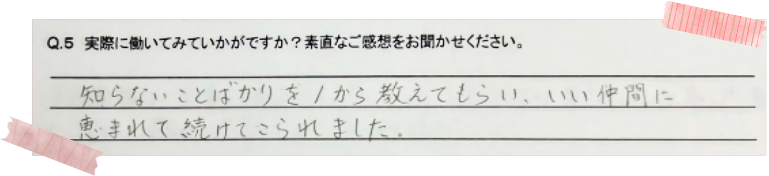 Q.5 実際に働いてみていかがですか？素直なご感想をお聞かせください。
知らないことばかりを1から教えてもらい、いい仲間に
恵まれて続けてこられました。